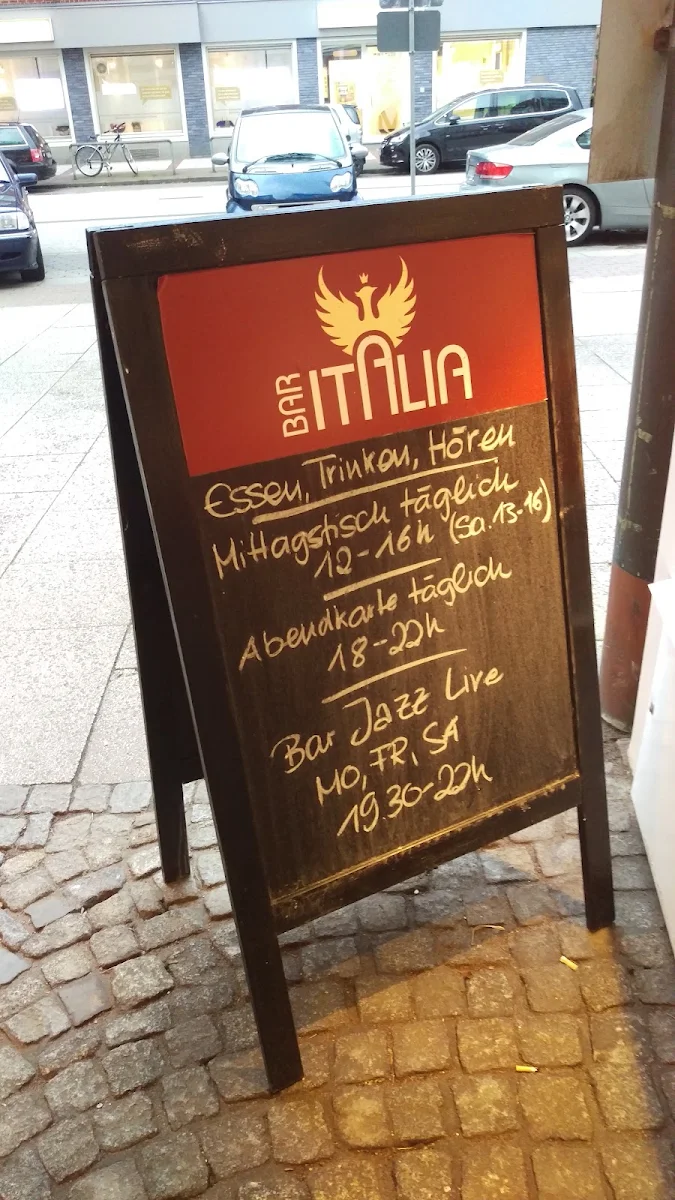 BAR ITALIA
Essen, Trinken, Hören
Mittagstisch täglich
12-16h (Sa. 13-16)
Abendkarte täglich
18-22h
Bar Jazz Live
MO, FR, SA
19.30-22h